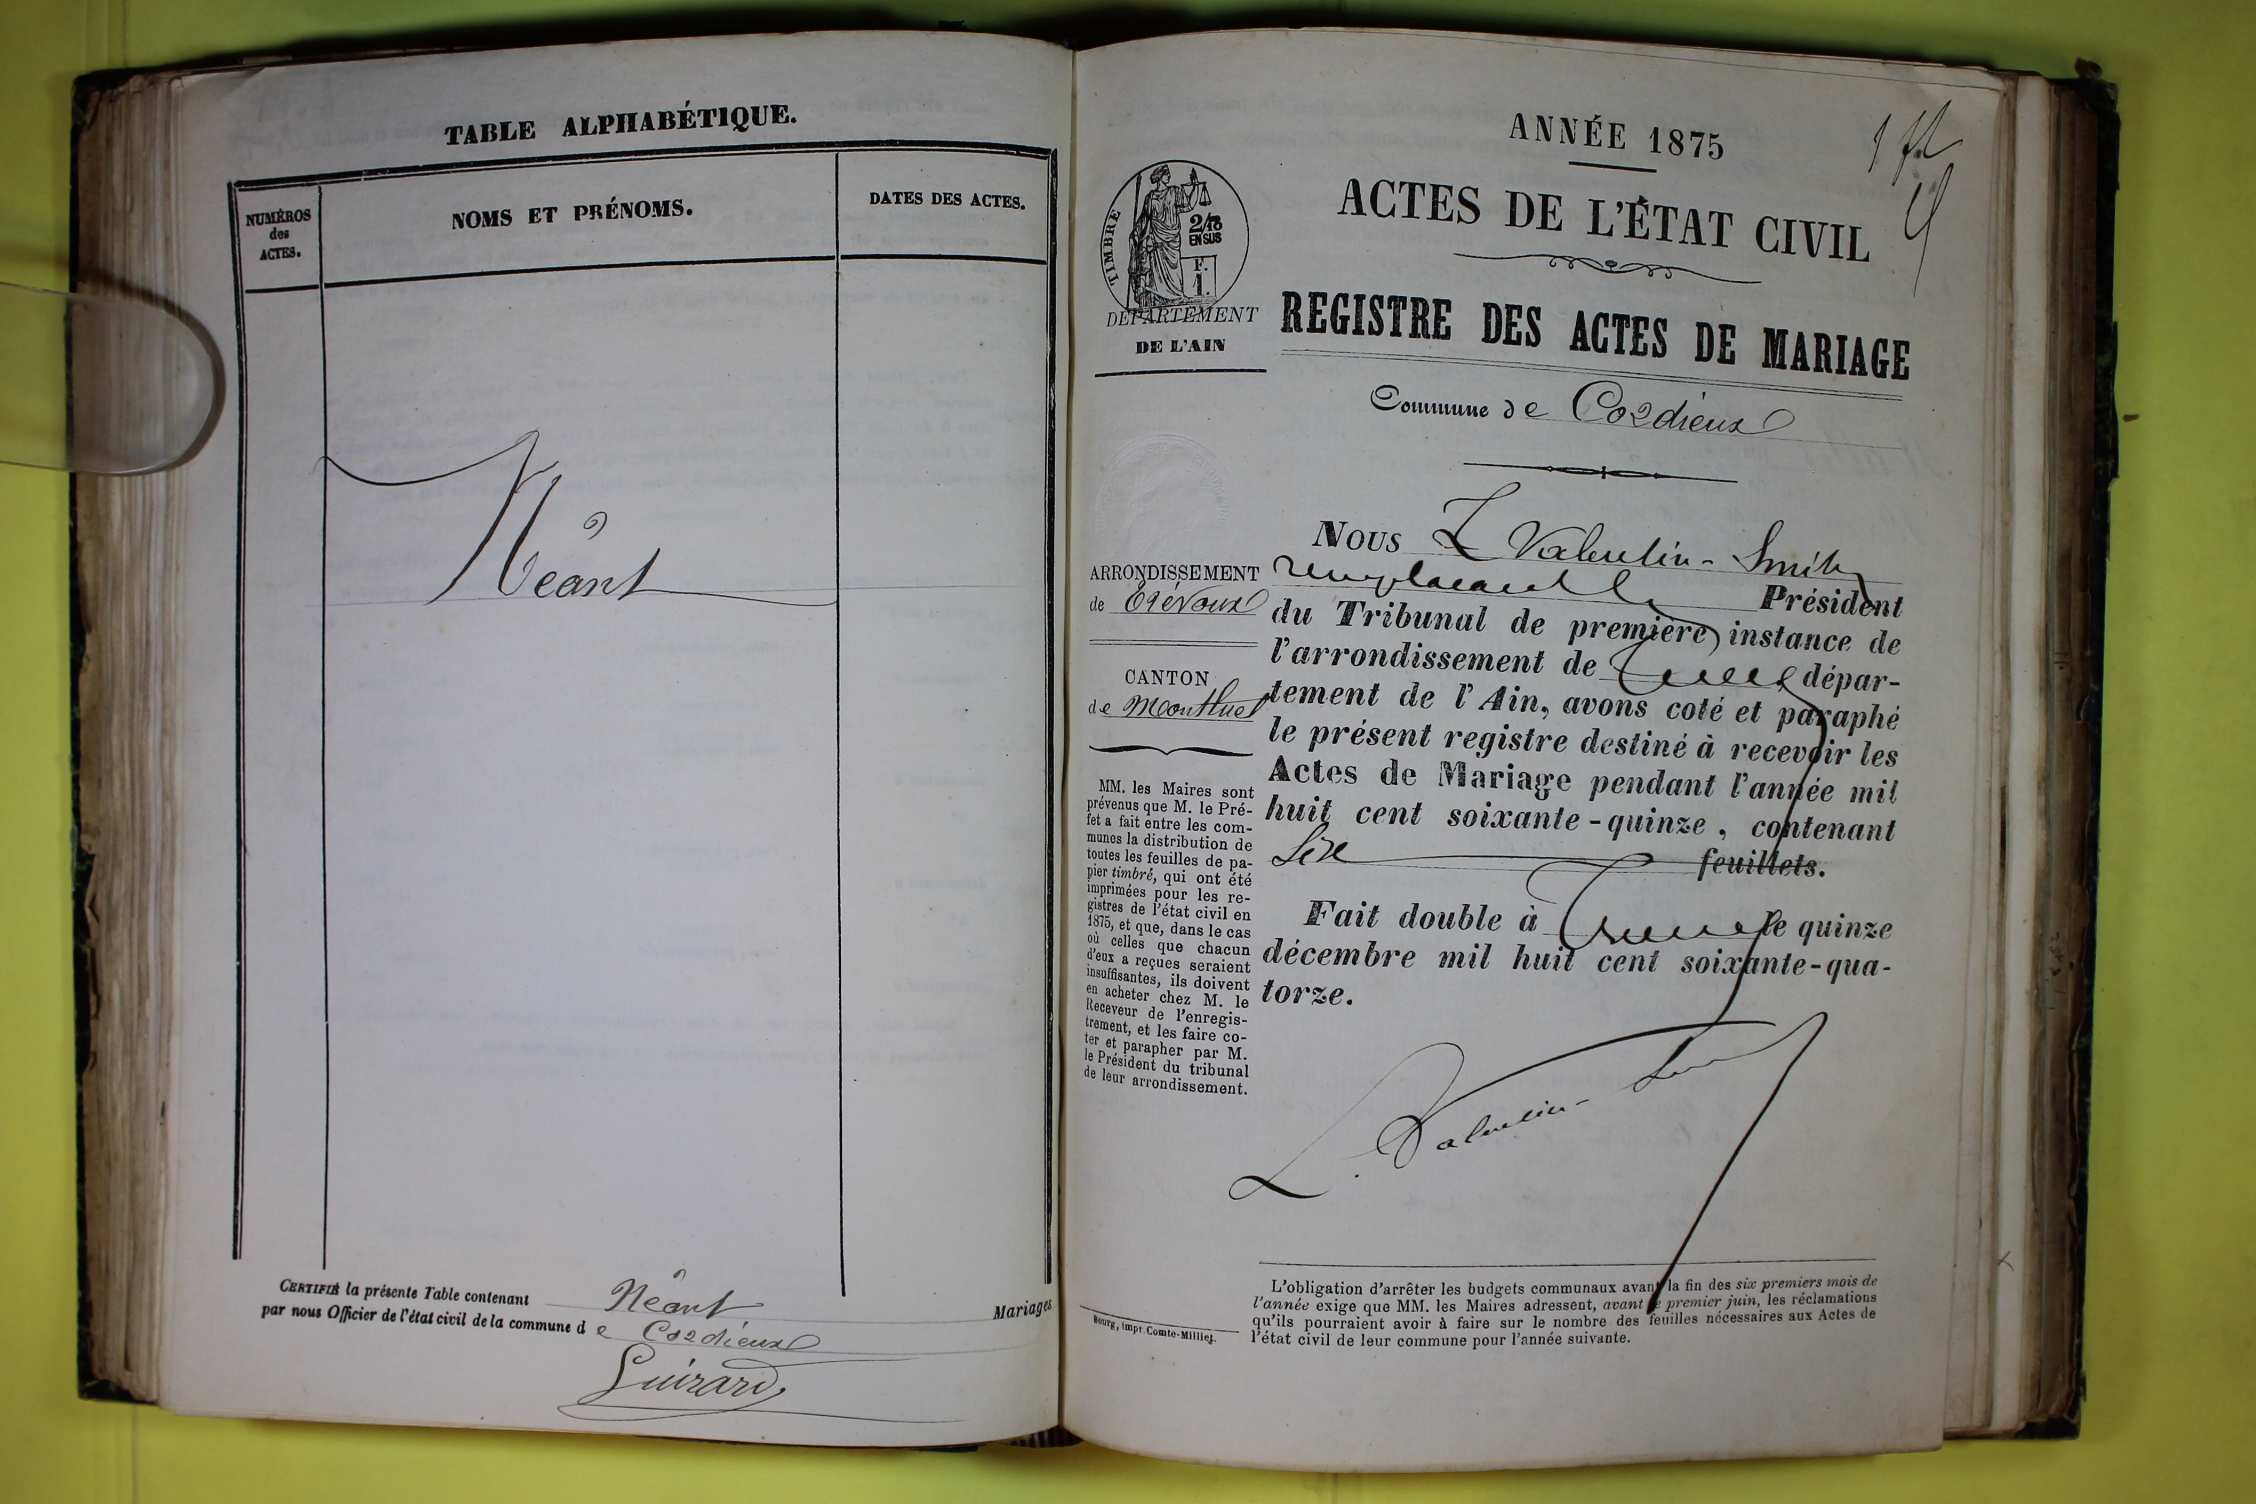 TABLE ALPHABÉTIQUE.
NUMÉROS
des
ACTES.
NOMS ET PRÉNOMS.
DATES DES ACTES.
Néant
CERTIFIÉ la présente Table contenant Néant Mariages
par nous Officier de l'état civil de la commune de Cordieux
Guirard
ANNÉE 1875
ACTES DE L'ÉTAT CIVIL
TIMBRE
2/10
EN SUS
F.
1.
DÉPARTEMENT
DE L'AIN
REGISTRE DES ACTES DE MARIAGE
Commune de Cordieux
ARRONDISSEMENT
de Trévoux
CANTON
de Montluel
MM. les Maires sont
prévenus que M. le Pré-
fet a fait entre les com-
munes la distribution de
toutes les feuilles de pa-
pier timbré, qui ont été
imprimées pour les re-
gistres de l'état civil en
1875, et que, dans le cas
où celles que chacun
d'eux a reçues seraient
insuffisantes, ils doivent
en acheter chez M. le
Receveur de l'enregis-
trement, et les faire co-
ter et parapher par M.
le Président du tribunal
de leur arrondissement.
Nous L Valentin-Smith
remplaçant le Président
du Tribunal de première instance de
l'arrondissement de Trévoux dépar-
tement de l'Ain, avons coté et paraphé
le présent registre destiné à recevoir les
Actes de Mariage pendant l'année mil
huit cent soixante-quinze, contenant
Six feuillets.
Fait double à Trévoux le quinze
décembre mil huit cent soixante-qua-
torze.
L. Valentin-Smith
L'obligation d'arrêter les budgets communaux avant la fin des six premiers mois de
l'année exige que MM. les Maires adressent, avant le premier juin, les réclamations
qu'ils pourraient avoir à faire sur le nombre des feuilles nécessaires aux Actes de
l'état civil de leur commune pour l'année suivante.
Bourg, impr. Comte-Milliet.